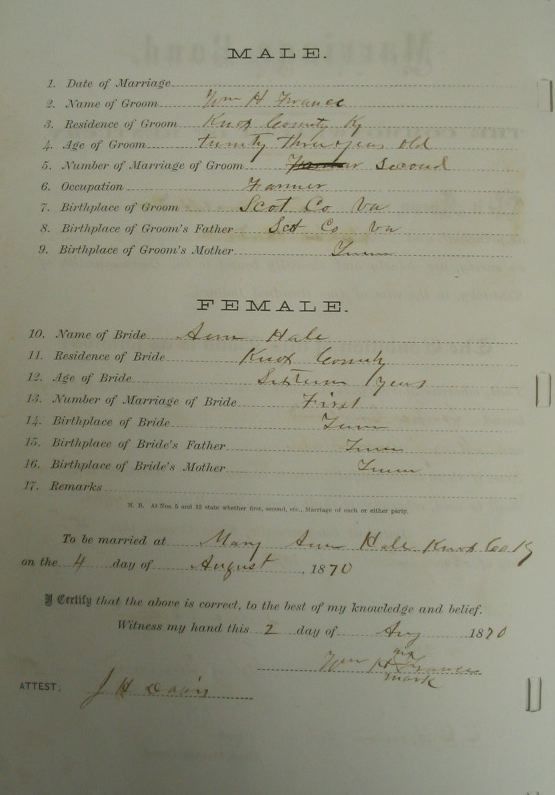 MALE.
1. Date of Marriage
2. Name of Groom Wm H Frances
3. Residence of Groom Knox County Ky
4. Age of Groom twenty three years old
5. Number of Marriage of Groom Farmer Second
6. Occupation Farmer
7. Birthplace of Groom Scot Co Va
8. Birthplace of Groom's Father Scot Co Va
9. Birthplace of Groom's Mother Tenn
FEMALE.
10. Name of Bride Ann Hale
11. Residence of Bride Knox County
12. Age of Bride Sixteen years
13. Number of Marriage of Bride First
14. Birthplace of Bride Tenn
15. Birthplace of Bride's Father Tenn
16. Birthplace of Bride's Mother Tenn
17. Remarks
N. B. At Nos. 5 and 13 state whether first, second, etc., Marriage of each or either party.
To be married at Mary Ann Hale Knox Co Ky
on the 4 day of August, 1870
I Certify that the above is correct, to the best of my knowledge and belief.
Witness my hand this 2 day of Aug 1870
his
Wm H Frances
mark
ATTEST; J H Davis